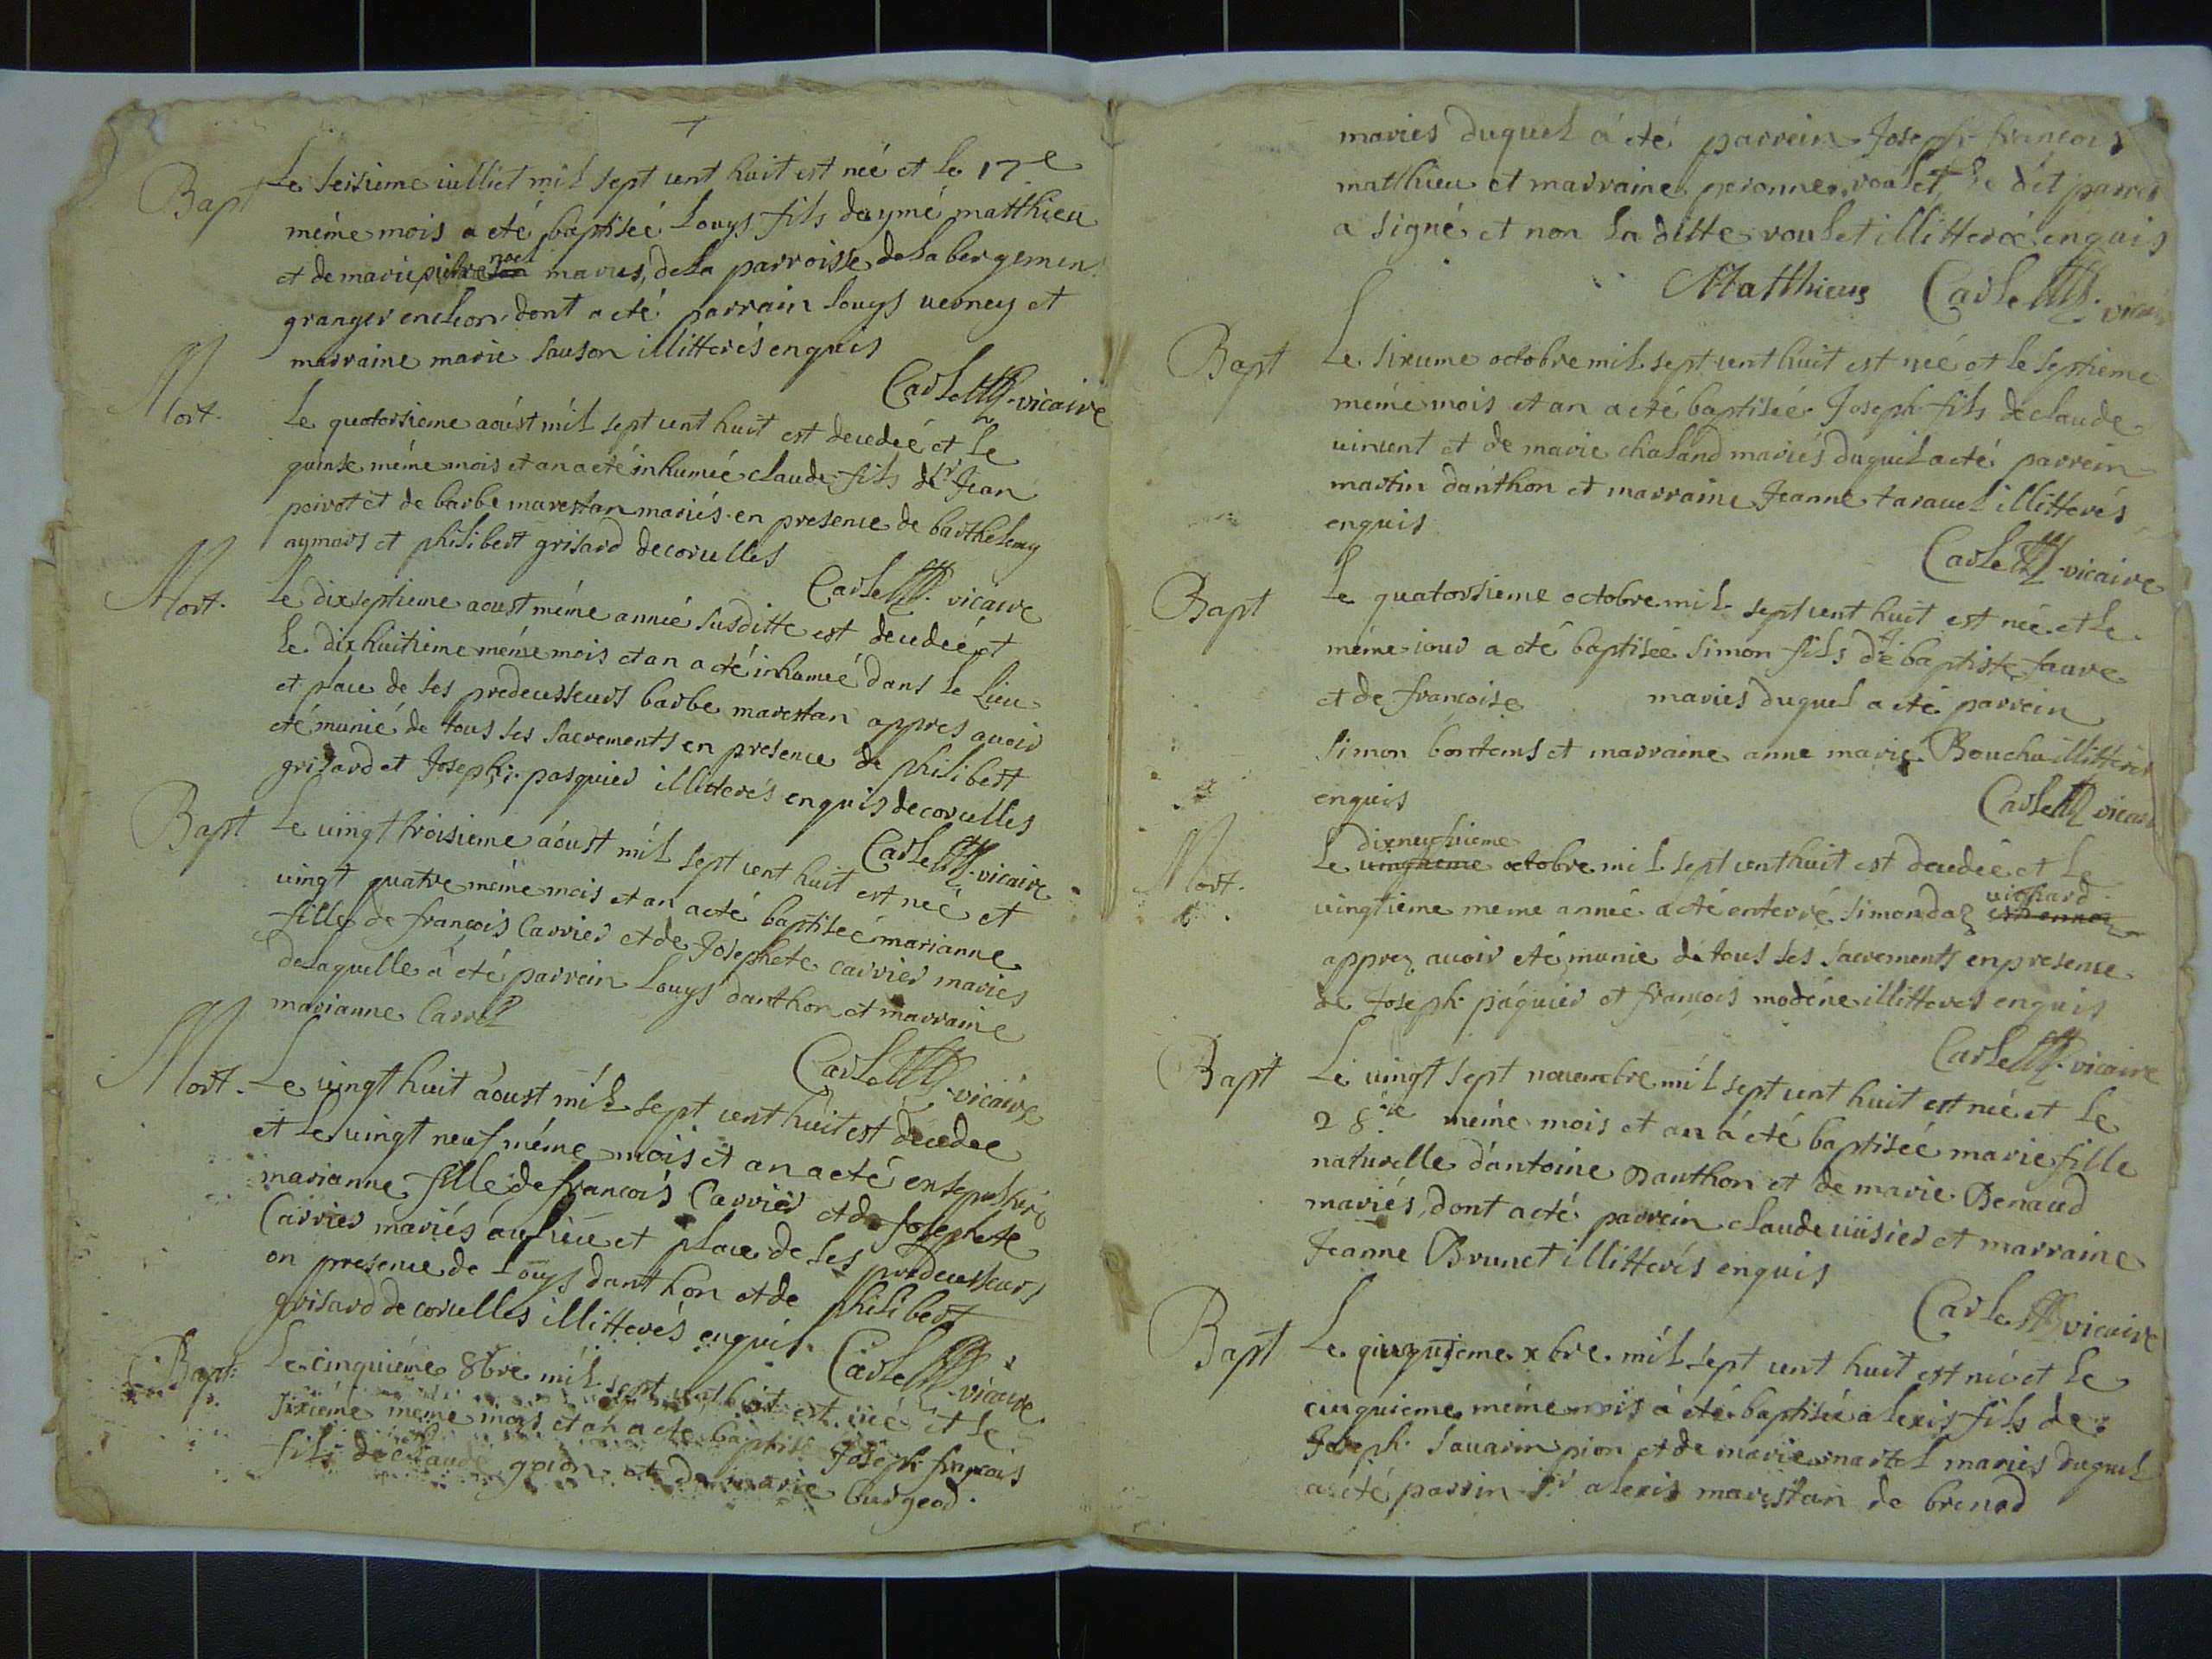 Bapt Le seisieme iulliet mil sept cent huit est neé et le 17e
méme mois a eté baptiseé Louys fils daymé matthieu
et de marie maries, de la parroisse de la bergemen
granger en chon dont a eté parrain Louys verney et
marraine marie sauson illitterés enquis
Carlet vicaire
Mort. Le quatorsieme aoúst mil sept cent huit est decedeé et le
quinse méme mois et an a eté inhumeé claude fils de sr Jean
poirot et de barbe marestan mariés en presence de barthelemy
aymars et philibert grisard de corcelles
Carlet vicaire
Mort. Le dixseptieme aoust méme anneé susditte est decedeé et
le dixhuitieme méme mois et an a eté inhumeé dans le lieu
et place de ses predecesseurs barbe marestan appres auoir
eté munié de tous ses sacrements en presence de philibert
grisard et Joseph pasquier illitterés enquis de corcelles
Carlet vicaire
Bapt Le uingt troisieme aóust mil sept cent huit est neé et
uingt quatre méme mois et an a eté baptiseé marianne
fille de francois Carrier et de Josephete carrier maries
de laquelle á eté parrein Louys danthon et marraine
marianne Carrel
Carlet vicaire
Mort. Le uingt huit aóust mil sept cent huit est decedee
et le uingt neuf méme mois et an a eté ensepulturé
marianne fille de francois Carrier et de Josephete
Carrier mariés au lieu et place de ses predecesseurs
en presence de Louys danthon et de philibert
grisard de corcelles illitterés enquis
Carlet vicaire
Bapt. Le cinquiéme 8bre mil sept cent huit est neé et le
sixiéme méme mois et an a eté baptisé Joseph francois
fils de claude goion et de marie burgeod.
maries duquel á eté parrein Joseph francois
matthieu et marraine peronne roulet, le dit parrein
a signé et non la ditte roulet illitteree enquis
Matthieus Carlet vicaire
Bapt Le sixieme octobre mil sept cent huit est neé et le septieme
méme mois et an a eté baptiseé Joseph fils de claude
uincent et de marie chaland mariés duquel a eté parrein
martin danthon et marraine Jeanne tarauel illitterés
enquis
Carlet vicaire
Bapt Le quatorsieme octobre mil sept cent huit est neé et le
méme iour a eté baptiseé Simon fils de baptiste faure
et de francoise maries duquel a eté parrein
Simon bontems et marraine anne marie Bouchu illitterés
enquis
Carlet vicaire
dixneufuieme
Mort. Le uingtieme octobre mil sept cent huit est decedeé et le
uichard
uingtieme meme anneé a eté enterré Simonda
apprez auoir eté munie de tous ses sacrements en presence
de Joseph páquier et francois modéne illitterés enquis
Carlet vicaire
Bapt Le uingt sept nouembre mil sept cent huit est neé et le
28ie méme mois et an á eté baptiseé marie fille
naturelle d'antoine Danthon et de marie Benaud
mariés, dont a eté parrein claude uüsier et marraine
Jeanne Brunet illitterés enquis
Carlet vicaire
Bapt Le cinquieme xbre mil sept cent huit est neé et le
cinquieme méme mois á eté baptiseé alexis fils de
Joseph Sauarin pion et de marie martel maries duquel
a eté parrin sr alexis marestan de brenod